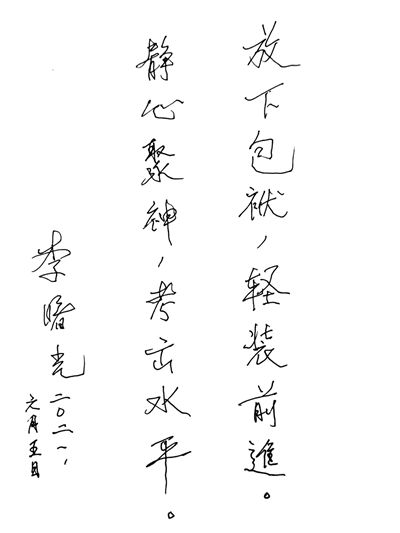 放下包袱，軽装前進。
静心聚神，考出水平。
李曙光
二〇二一，
元月五日